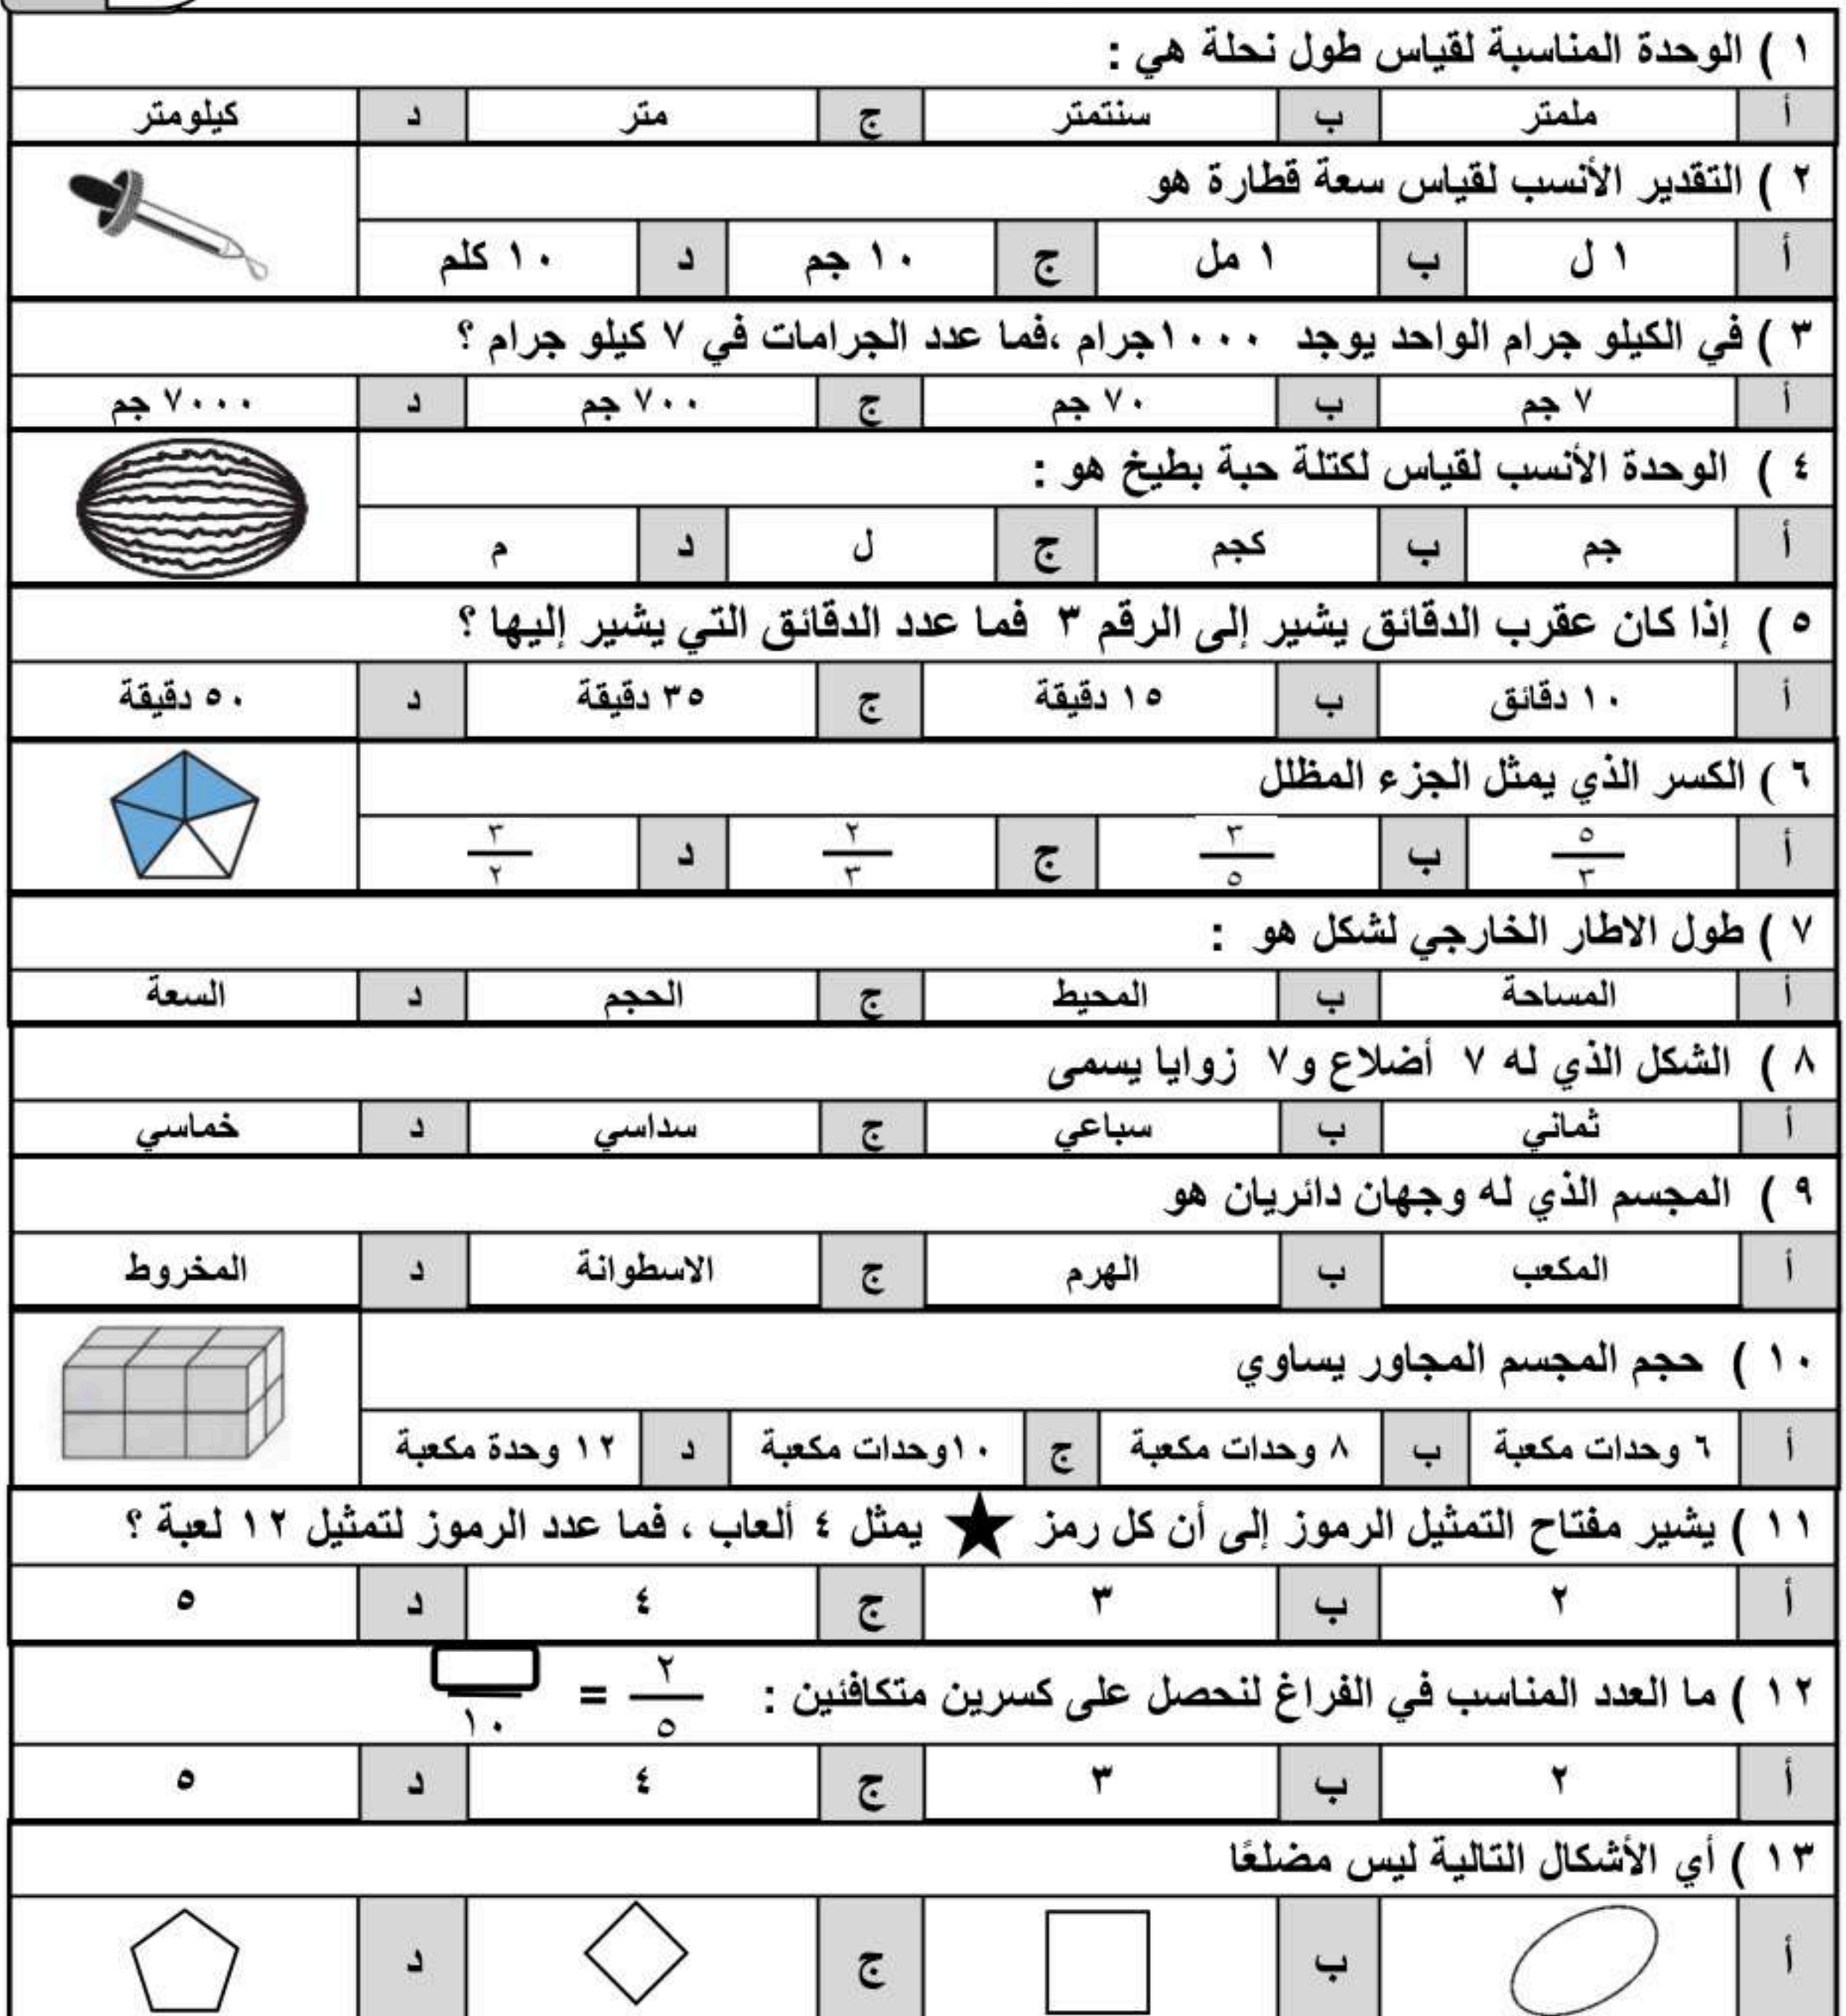 ١ ) الوحدة المناسبة لقياس طول نحلة هي :
أ ملمتر ب سنتمتر ج متر د كيلومتر
٢ ) التقدير الأنسب لقياس سعة قطارة هو
أ ١ ل ب ١ مل ج ١٠ جم د ١٠ كلم
٣ ) في الكيلو جرام الواحد يوجد ١٠٠٠جرام ،فما عدد الجرامات في ٧ كيلو جرام ؟
أ ٧ جم ب ٧٠ جم ج ٧٠٠ جم د ٧٠٠٠ جم
٤ ) الوحدة الأنسب لقياس لكتلة حبة بطيخ هو :
أ جم ب كجم ج ل د م
٥ ) إذا كان عقرب الدقائق يشير إلى الرقم ٣ فما عدد الدقائق التي يشير إليها ؟
أ ١٠ دقائق ب ١٥ دقيقة ج ٣٥ دقيقة د ٥٠ دقيقة
٦ ) الكسر الذي يمثل الجزء المظلل
أ ٥/٣ ب ٣/٥ ج ٢/٣ د ٣/٢
٧ ) طول الاطار الخارجي لشكل هو :
أ المساحة ب المحيط ج الحجم د السعة
٨ ) الشكل الذي له ٧ أضلاع و٧ زوايا يسمى
أ ثماني ب سباعي ج سداسي د خماسي
٩ ) المجسم الذي له وجهان دائريان هو
أ المكعب ب الهرم ج الاسطوانة د المخروط
١٠ ) حجم المجسم المجاور يساوي
أ ٦ وحدات مكعبة ب ٨ وحدات مكعبة ج ١٠وحدات مكعبة د ١٢ وحدة مكعبة
١١ ) يشير مفتاح التمثيل الرموز إلى أن كل رمز ★ يمثل ٤ ألعاب ، فما عدد الرموز لتمثيل ١٢ لعبة ؟
أ ٢ ب ٣ ج ٤ د ٥
١٢ ) ما العدد المناسب في الفراغ لنحصل على كسرين متكافئين : ٢/٥ = □/١٠
أ ٢ ب ٣ ج ٤ د ٥
١٣ ) أي الأشكال التالية ليس مضلعًا
أ ب ج د